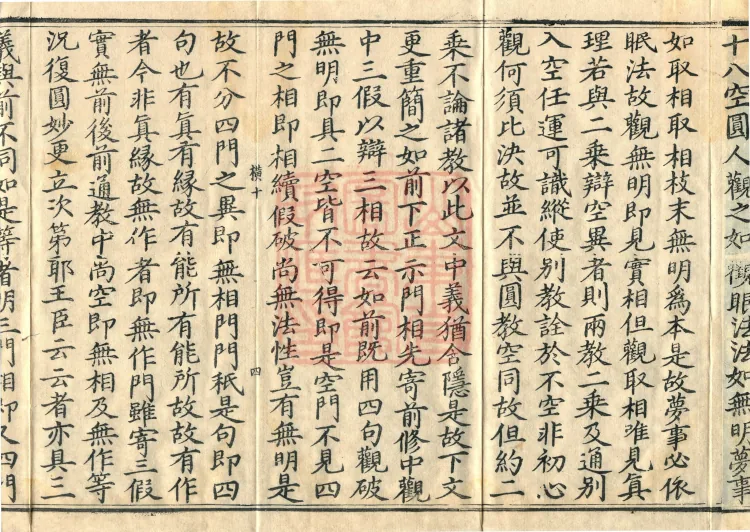 十八空圓人觀之如觀眠法法如無明夢事
如取相取相枝末無明爲本是故夢事必依
眠法故觀無明即見實相但觀取相唯見眞
理若與二乘辯空異者則兩教二乘及通別
入空任運可識縱使別教詮於不空非初心
觀何須比決故並不與圓教空同故但約二
乘不論諸教以此文中義猶含隱是故下文
更重簡之如前下正示門相先寄前修中觀
中三假以辯三相故云如前既用四句觀破
無明即具二空皆不可得即是空門不見四
門之相即相續假破尚無法性豈有無明是
橫十
四
故不分四門之異即無相門門秖是句即四
句也有眞有緣故有能所有能所故故有作
者今非眞緣故無作者即無作門雖寄三假
實無前後前通教中尚空即無相及無作等
況復圓妙更立次第耶王臣云云者亦具三
義與前不同如是等者明三門相即又四門